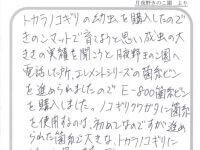 月夜野きのこ園 より
トカラノコギリの幼虫を購入したので
きのこマットで育ようと思い成虫の大
きさの実績を聞こうと月夜野きのこ園へ
電話した所、エレメントシリーズの菌糸ビン
を進められましたのでE-800菌糸ビン
を購入しました。ノコギリクワガタに菌糸
を使用するのは、初めてなのですが進め
られた菌糸で大きな、トカラノコギリに